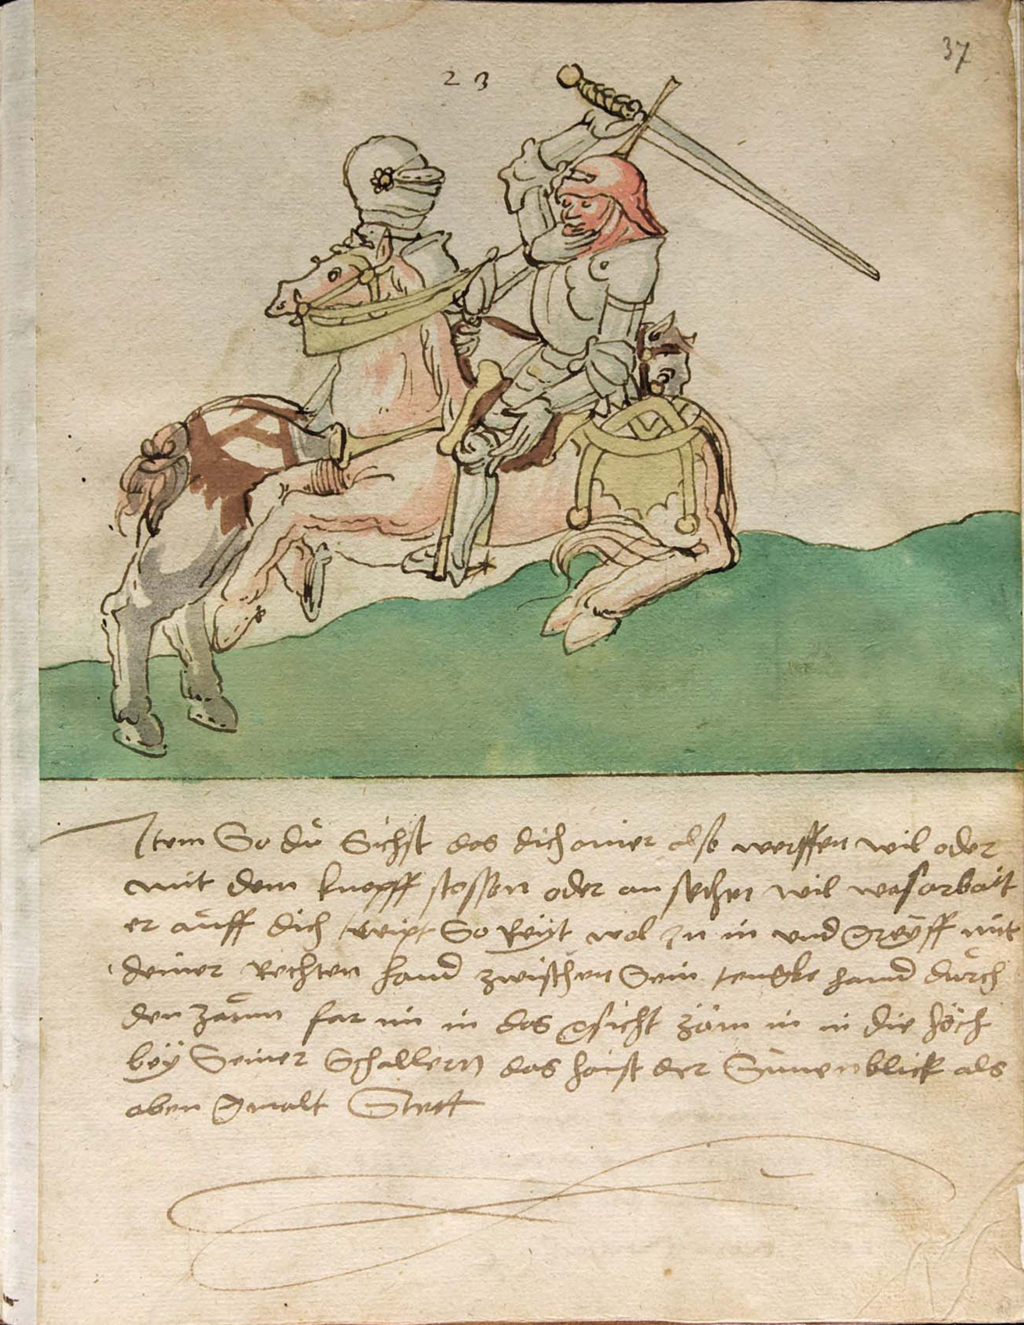 37
23
Item So du Sichst das dich ainer also werffen wil oder
mit dem knopff stossen oder an sechen wil was arbait
er auff dich treipt So Reyt wol zu im und Greyff mit
deiner Rechten hand zwischen Sein tengke hand durch
den zaum far im in das gsicht zäm in in die höch
bey Seiner Schallern das haist der Sünenblick als
oben Gmalt Stett